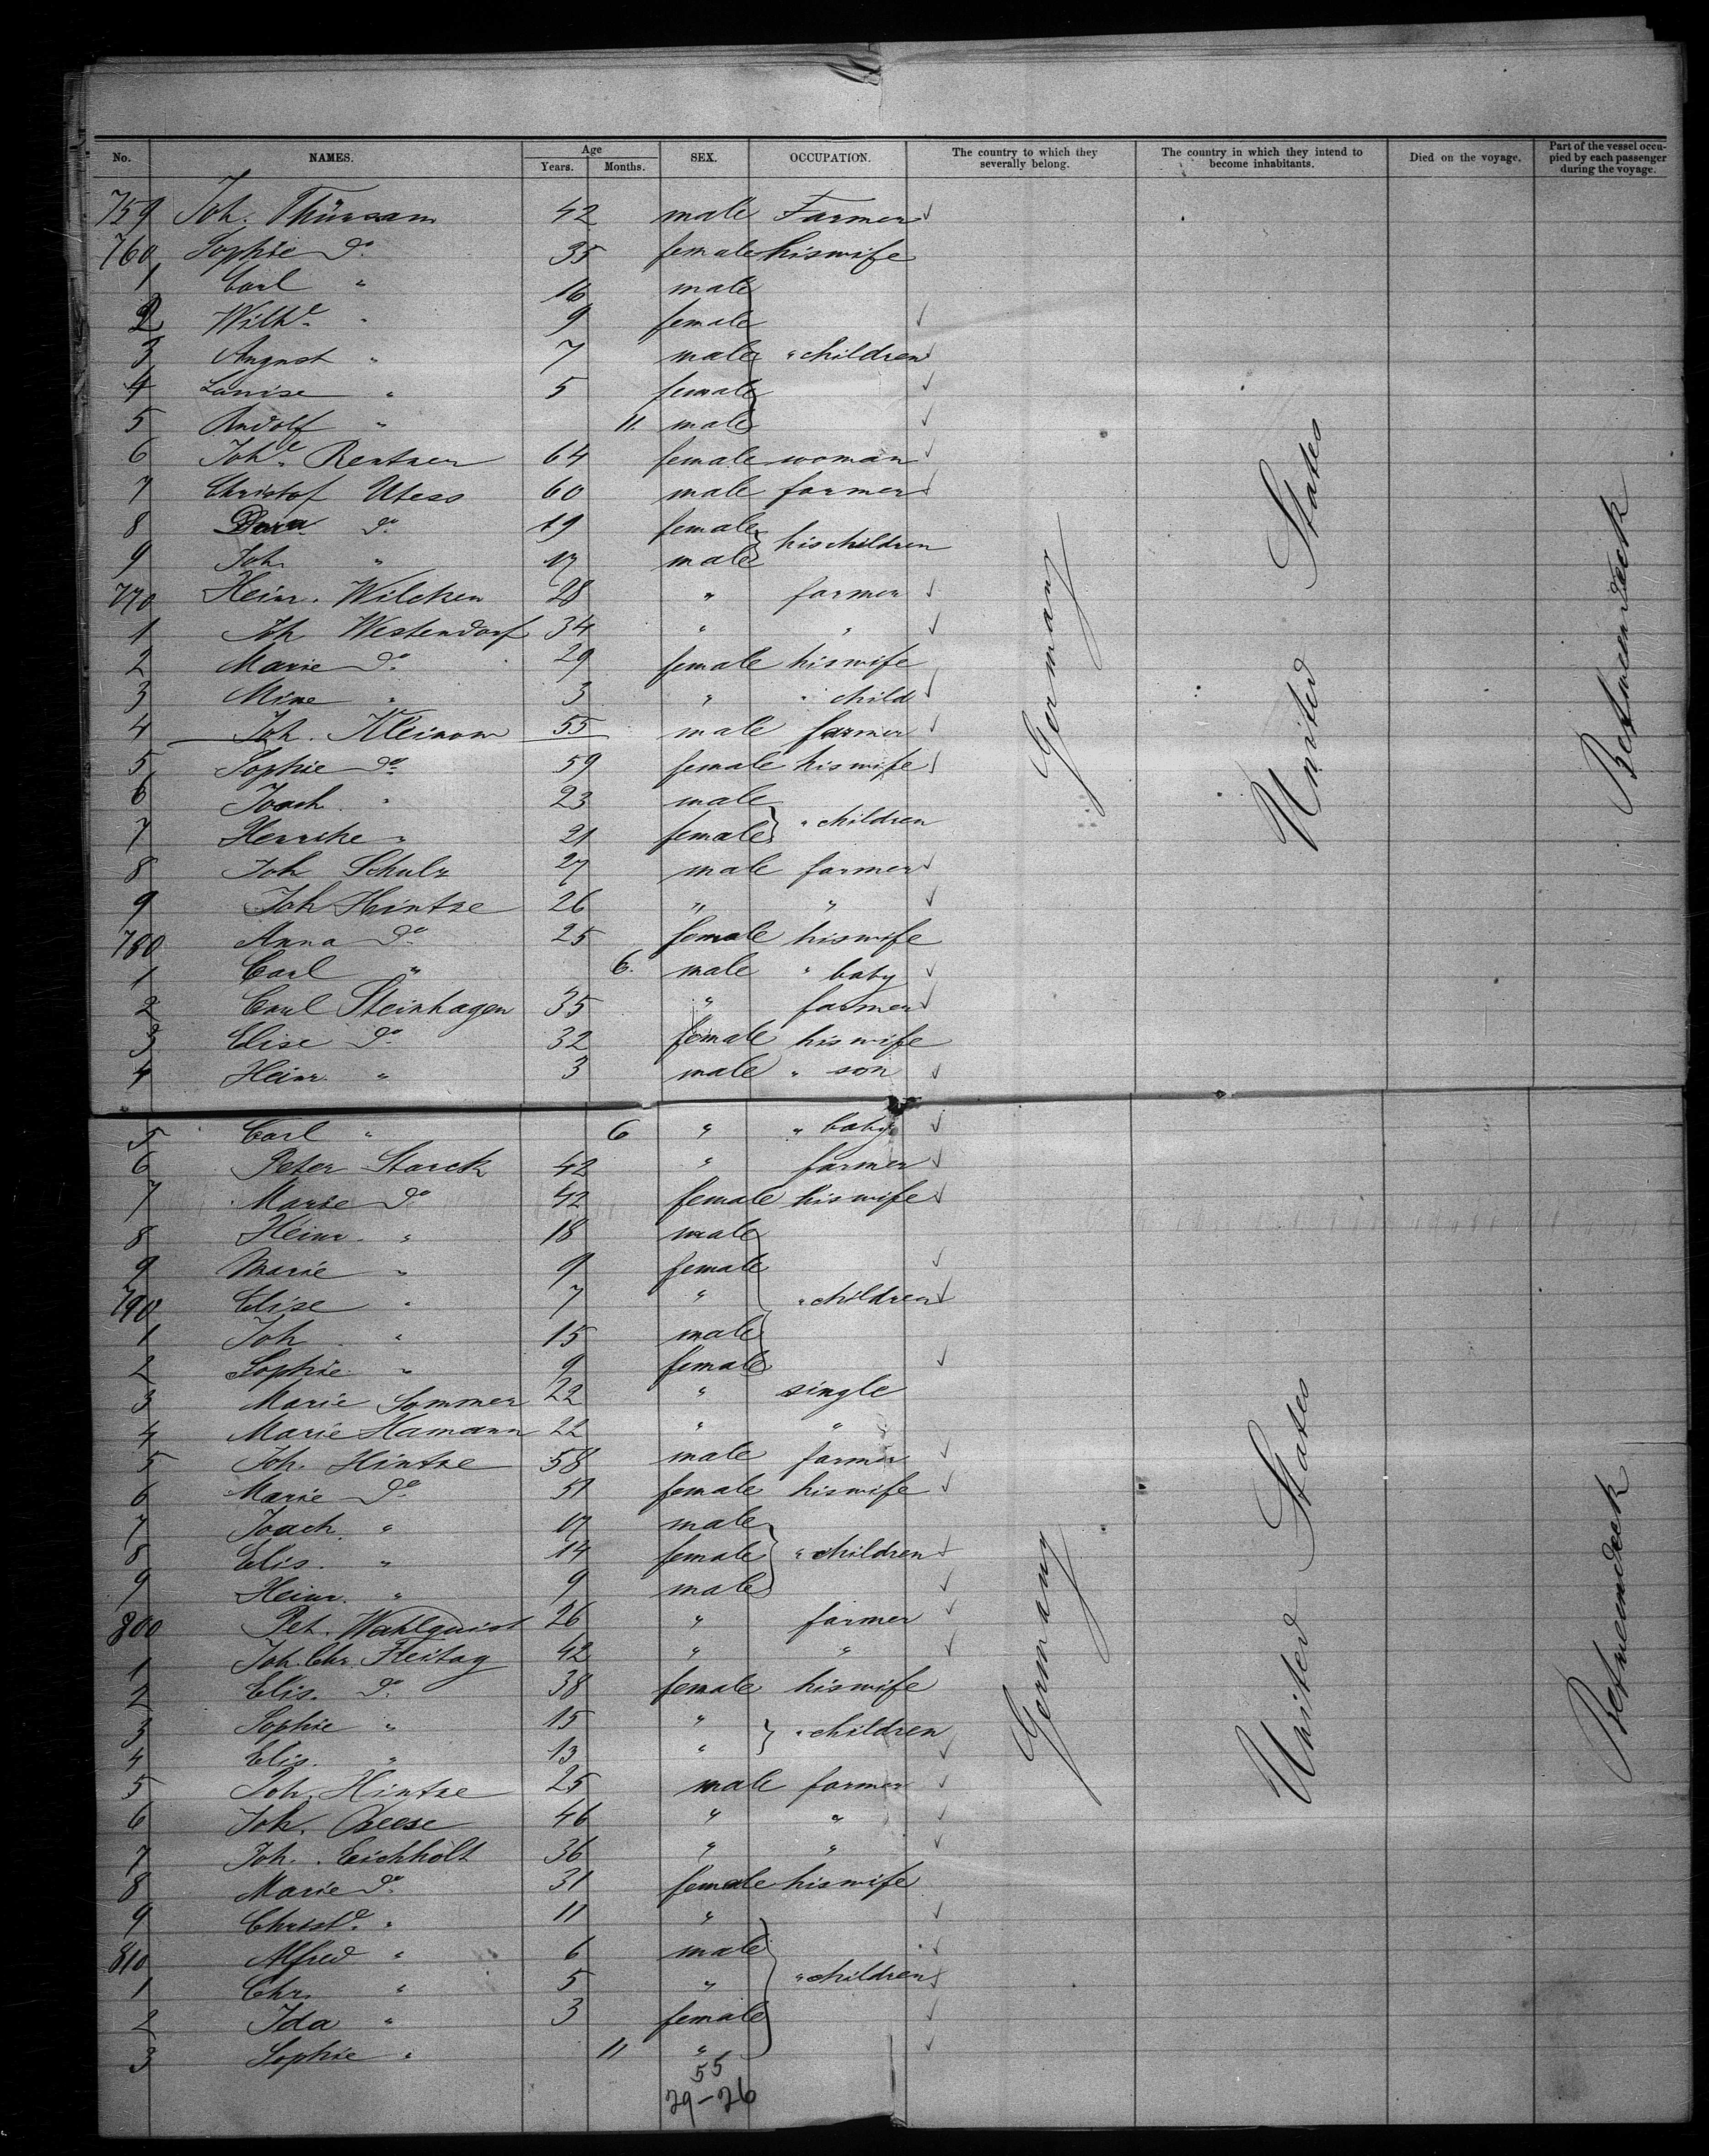 No. NAMES. Age Years. Months. SEX. OCCUPATION. The country to which they severally belong. The country in which they intend to become inhabitants. Died on the voyage. Part of the vessel occupied by each passenger during the voyage.
759 Joh. Thürsam 42 male Farmer ✓
760 Sophie do 35 female his wife
1 Carl " 16 male
2 Wilhe " 9 female ✓
3 August " 7 male " children ✓
4 Louise " 5 female ✓
5 Rudolf " 11. male ✓
6 Johe Rentner 64 female woman ✓
7 Christof Utess 60 male farmer ✓
8 Dora do 19 female
his children
9 Joh. " 17 male
770 Heinr. Wilcken 28 " farmer ✓
1 Joh Westendorf 34 " " ✓
2 Marie do 29 female his wife
3 Mine " 3 " " child ✓
4 Joh. Kleinow 55 male farmer ✓
5 Sophie do 59 female his wife ✓
6 Joach. " 23 male
" children
7 Henrike " 21 female
8 Joh Schulz 27 male farmer ✓
9 Joh Hintze 26 " " ✓
780 Anna do 25 female his wife
1 Carl " 6. male " baby ✓
2 Carl Steinhagen 35 " farmer ✓
3 Elise do 32 female his wife
4 Heinr. " 3 male " son ✓
Germany
United States
Between deck
5 Carl " 6 " " baby ✓
6 Peter Starck 42 " farmer ✓
7 Marie do 42 female his wife ✓
8 Heinr. " 18 male
9 Marie " 9 female ✓
790 Elise " 7 " " children ✓
1 Joh " 15 male
2 Sophie " 9 female ✓
3 Marie Sommer 22 " single
4 Marie Hamann 22 " "
5 Joh. Hintze 58 male farmer ✓
6 Marie do 51 female his wife ✓
7 Joach. " 17 male
8 Elis. " 14 female " children ✓
9 Heinr. " 9 male ✓
800 Pet. Wahlquist 26 " farmer ✓
1 Joh. Chr. Freitag 42 " " ✓
2 Elis. do 38 female his wife
3 Sophie " 15 "
" children
4 Elis. " 13 " ✓
5 Joh. Hintze 25 male farmer ✓
6 Joh. Reese 46 " " ✓
7 Joh. Eichholt 36 " " ✓
8 Marie do 31 female his wife
9 Christe " 11 " ✓
810 Alfred " 6 male ✓
1 Chr. " 5 " " children ✓
2 Ida " 3 female ✓
3 Sophie " 11 " ✓
Germany
United States
Between deck
55
29-26